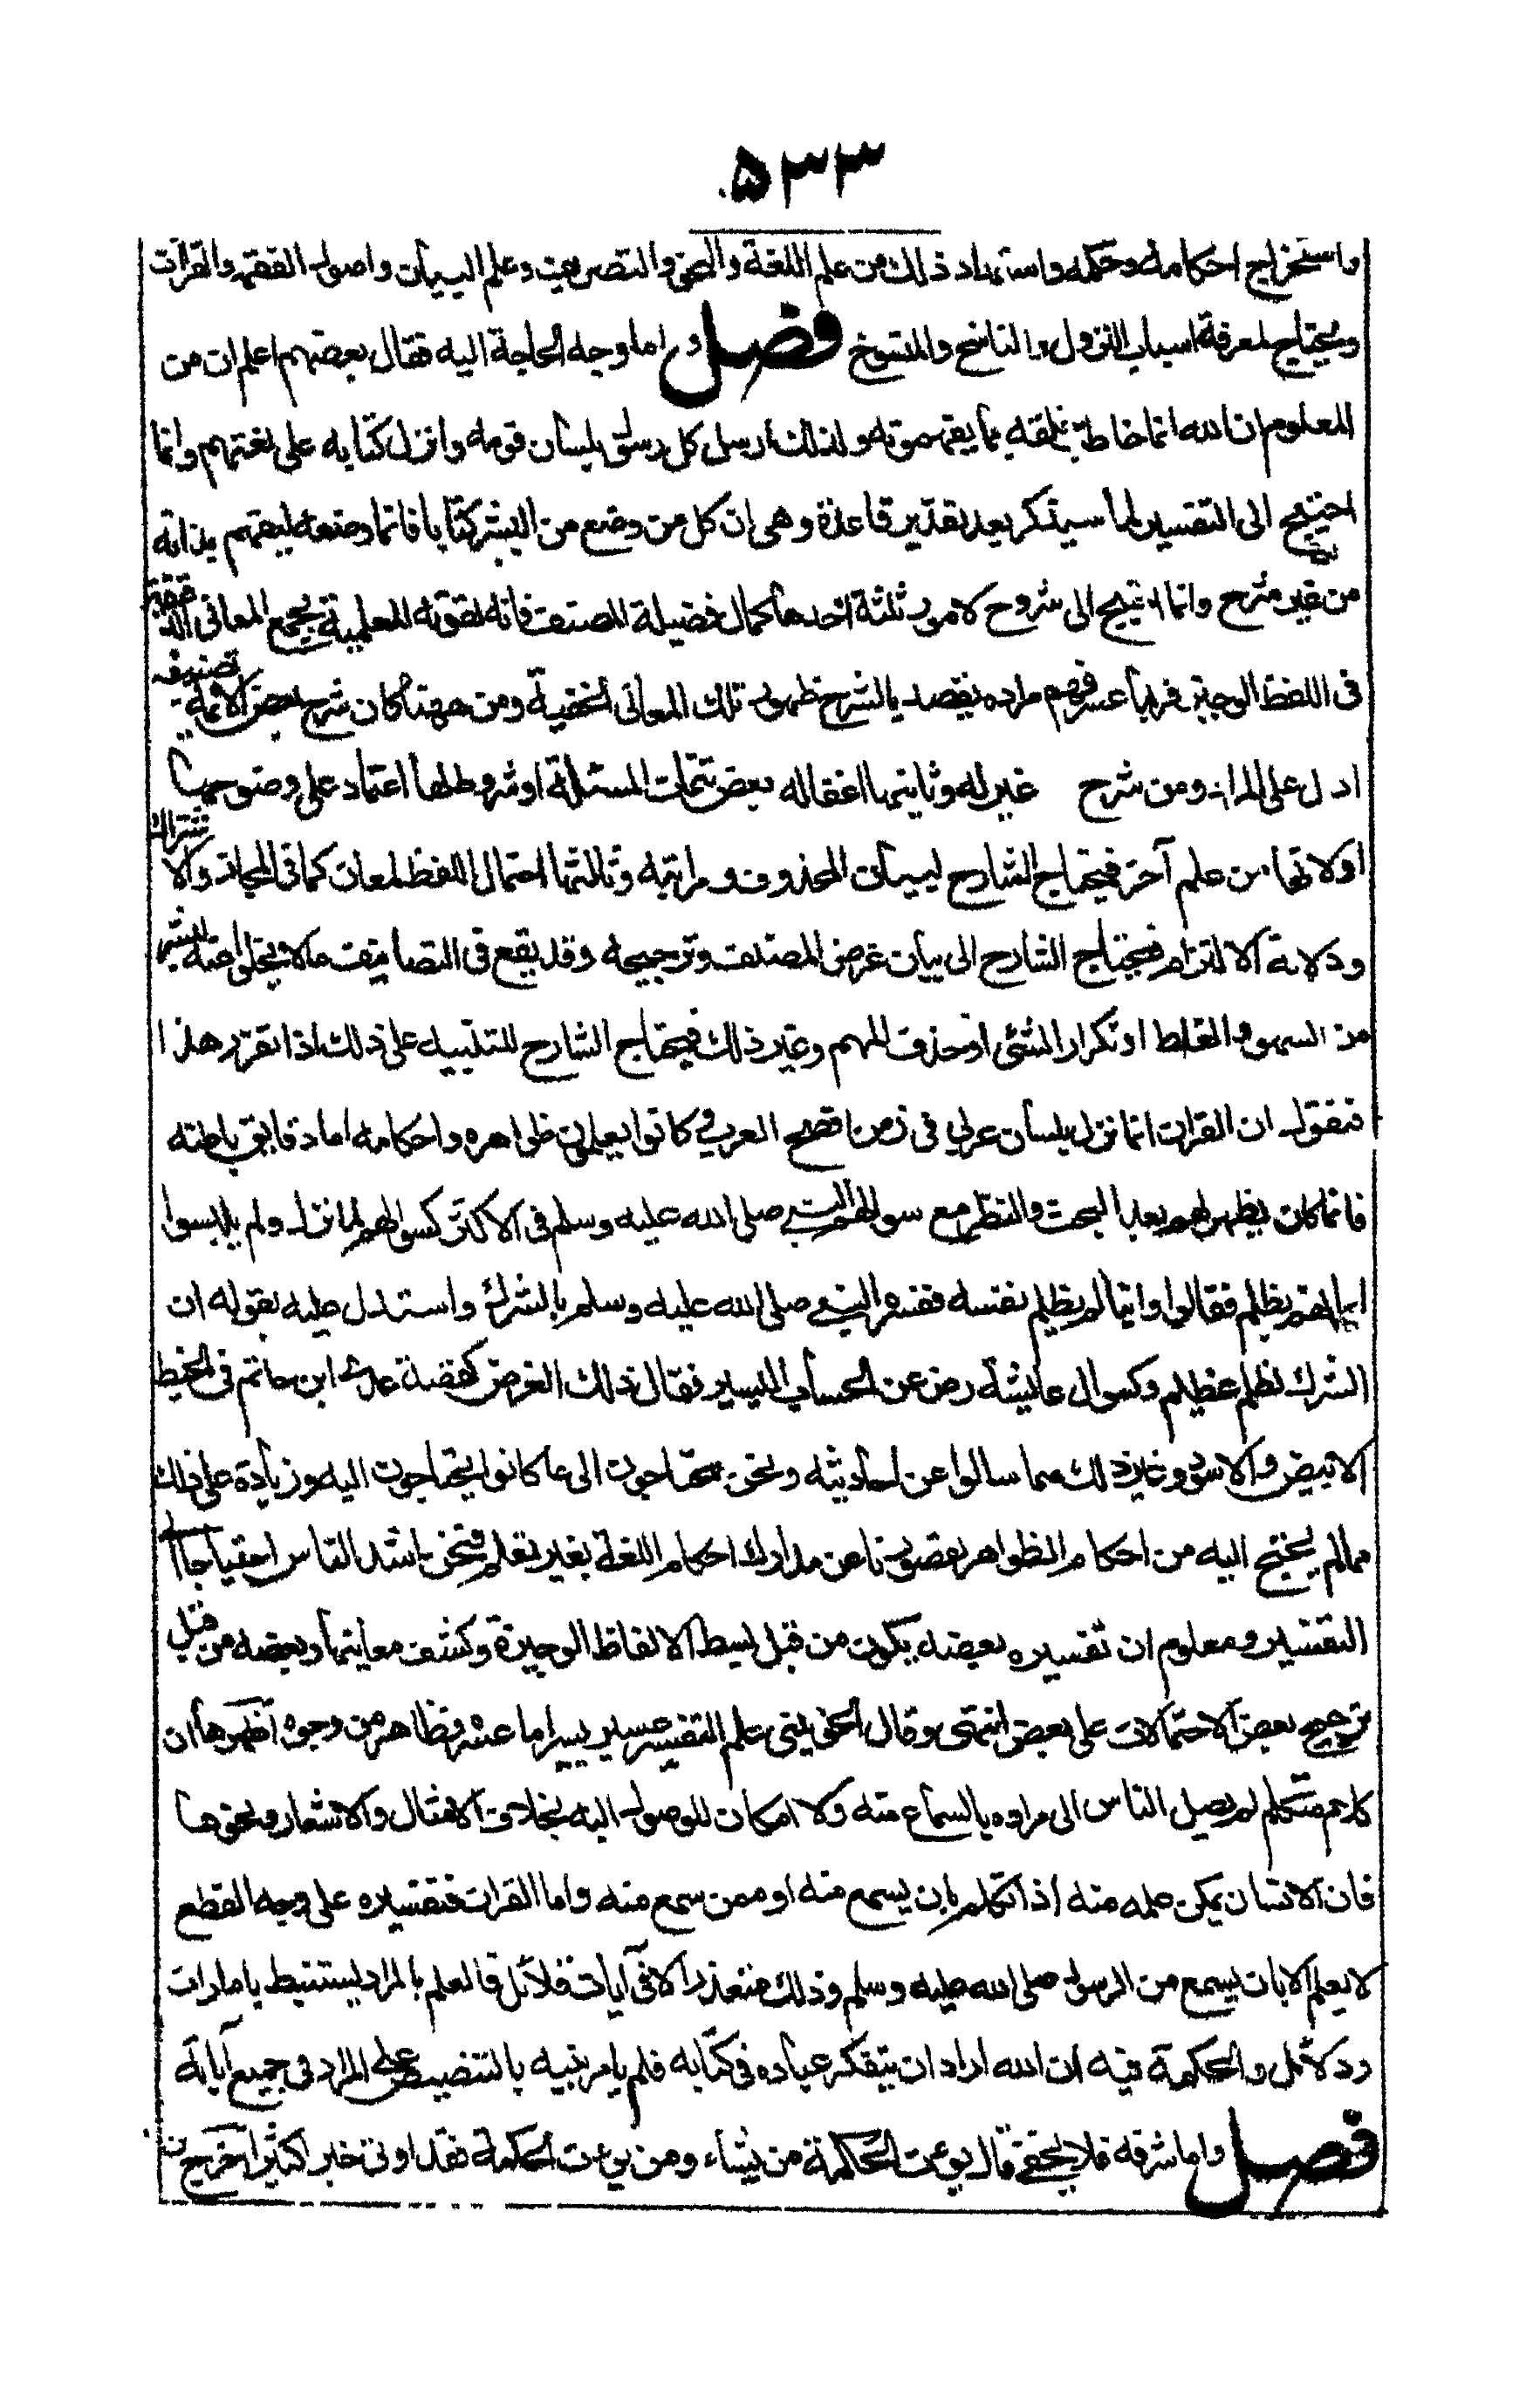 ۵۳۳
واستخراج احكامه وحكمه واستمداد ذلك من علم اللغة والنحو والتصريف وعلم البيان واصول الفقه والقرات
ويحتاج لمعرفة اسباب النزول والناسخ والمنسوخ فصل واما وجه الحاجة اليه فقال بعضهم اعلم ان من
المعلوم ان الله انما خاطب خلقه بما يفهمونه ولذلك ارسل كل رسول بلسان قومه وانزل كتابه على لغتهم وانما
احتيج الى التفسير لما سيذكر بعد تقرير قاعدة وهى ان كل من وضع من البشر كتابا فانما وضعه ليفهم بذاته
من غير شرح وانما احتيج الى شروح لامور ثلثة احدها كمال فضيلة المصنف فانه لقوته العلمية يجمع المعانى الدقيقة
فى اللفظ الوجيز فربما عسر فهم مراده فقصد بالشرح ظهور تلك المعانى الخفية ومن ههنا كان شرح بعض الائمة تصنيفه
ادل على المراد ومن شرح غيره له وثانيها اغفاله بعض تتمات المسئلة او شروط لها اعتماد على وضوحها
اولانها من علم آخر فيحتاج الشارح لبيان المحذوف ومراتبه وثالثها احتمال اللفظ لمعان كما فى المجاز والاشتراك
ودلالة الالتزام فيحتاج الشارح الى بيان غرض المصنف وترجيحه وقد يقع فى التصانيف مالا يخلو عنه البشر
من السهو والغلط او تكرار الشئى او حذف المبهم وغير ذلك فيحتاج الشارح للتنبيه على ذلك اذا تقرر هذا
فنقول ان القران انما نزل بلسان عربى فى زمن افصح العرب وكانوا يعلمون ظواهره واحكامه اما دقايق باطنه
فانما كان يظهر لهم بعد البحث والنظر مع سوالهم النبى صلى الله عليه وسلم فى الاكثر كسوالهم لما نزل ولم يلبسوا
ايمانهم بظلم فقالوا واينا لم يظلم نفسه ففسره النبى صلى الله عليه وسلم بالشرك واستدل عليه بقوله ان
الشرك لظلم عظيم وكسوال عايشة رض عن الحساب اليسير فقال ذلك العرض كقصة عدى ابن حاتم فى الخيط
الابيض والاسود وغير ذلك مما سالوا عن احاديثه ونحن محتاجون الى ما كانوا يحتاجون اليه وزيادة على ذلك
ممالم يحتج اليه من احكام الظواهر بقصورنا عن مدارك احكام اللغة بغير تعلم فنحن اشد الناس احتياجا الى
التفسير ومعلوم ان تفسيره بعضه يكون من قبل بسط الالفاظ الوجيزة وكشف معاينها وبعضه من قبل
ترجيح بعض الاحتمالات على بعض انتهى وقال الخويى علم التفسير عسير يسير اما عسره فظاهر من وجوه اظهرها ان
كلام متكلم لم يصل الناس الى مراده بالسماع منه ولا امكان للوصول اليه بخلاف الامثال والاشعار ونحوها
فان الانسان يمكن علمه منه اذا تكلم بان يسمع منه او ممن سمع منه واما القران فتفسيره على وجه القطع
لا يعلم الا بان يسمع من الرسول صلى الله عليه وسلم وذلك متعذر الا فى آيات قلائل فالعلم بالمراد يستنبط بامارات
ودلائل والحكمة فيه ان الله اراد ان يتفكر عباده فى كتابه فلم يامر نبيه بالتنصيص على المراد فى جميع آياته
فصل واما شرفه فلا يخفى قال يوتى الحكمة من يشاء ومن يوت الحكمة فقد اوتى خيرا كثيرا اخرج